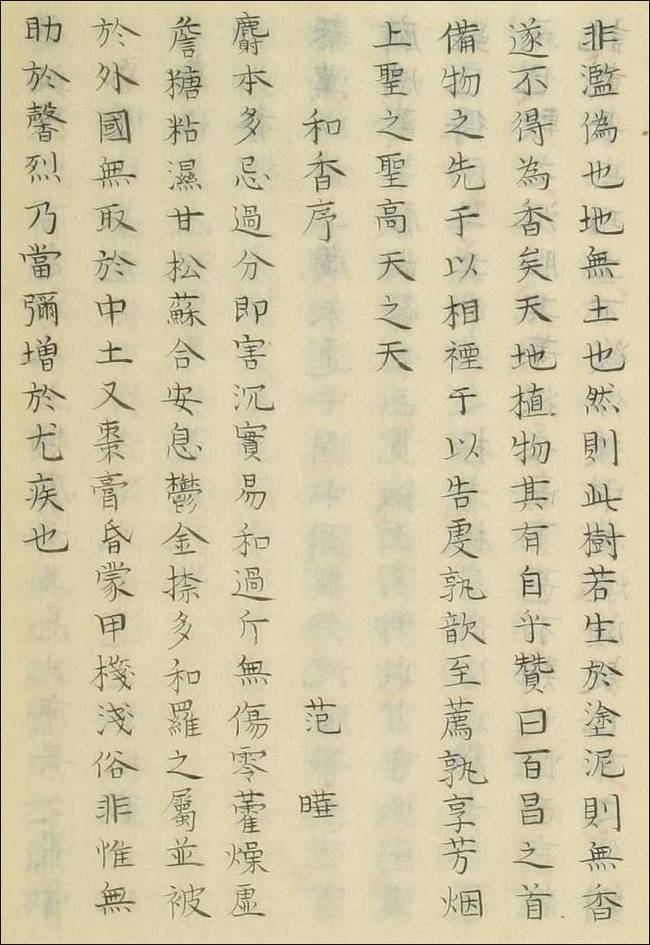 非濫偽也地無土也然則此樹若生於塗泥則無香
遂不得為香矣天地植物其有自乎贊曰百昌之首
備物之先于以相禋于以告虔孰歆至薦孰享芳烟
上聖之聖高天之天
和香序 范曄
麝本多忌過分即害沉實易和過斤無傷零藿燥虛
詹糖粘濕甘松蘇合安息鬱金捺多和羅之屬並被
於外國無取於中土又棗膏昏蒙甲棧淺俗非惟無
助於馨烈乃當彌增於尤疾也